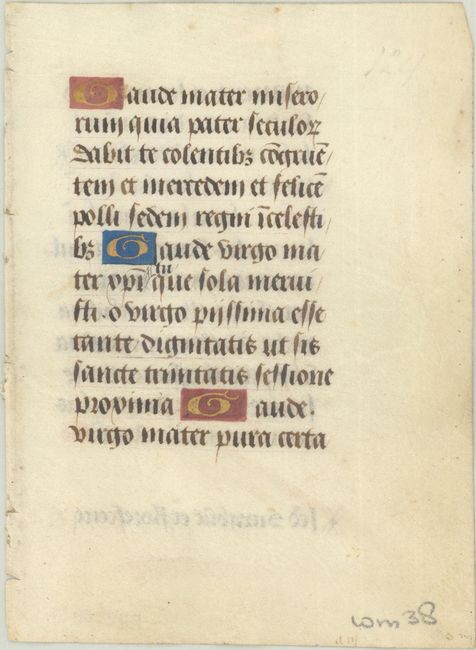 Gaude mater misero/
rum quia pater seculoꝝ
dabit te colentibꝫ cōgruē/
tem et mercedem et felicē
polli sedem regni ī celesti
bꝫ Gaude virgo ma
ter xp̄i tu que sola merui/
sti . o virgo pijssima esse
tante dignitatis ut sis
sancte trinitatis sessione
proxima Gaude .
virgo mater pura certa
wm 38